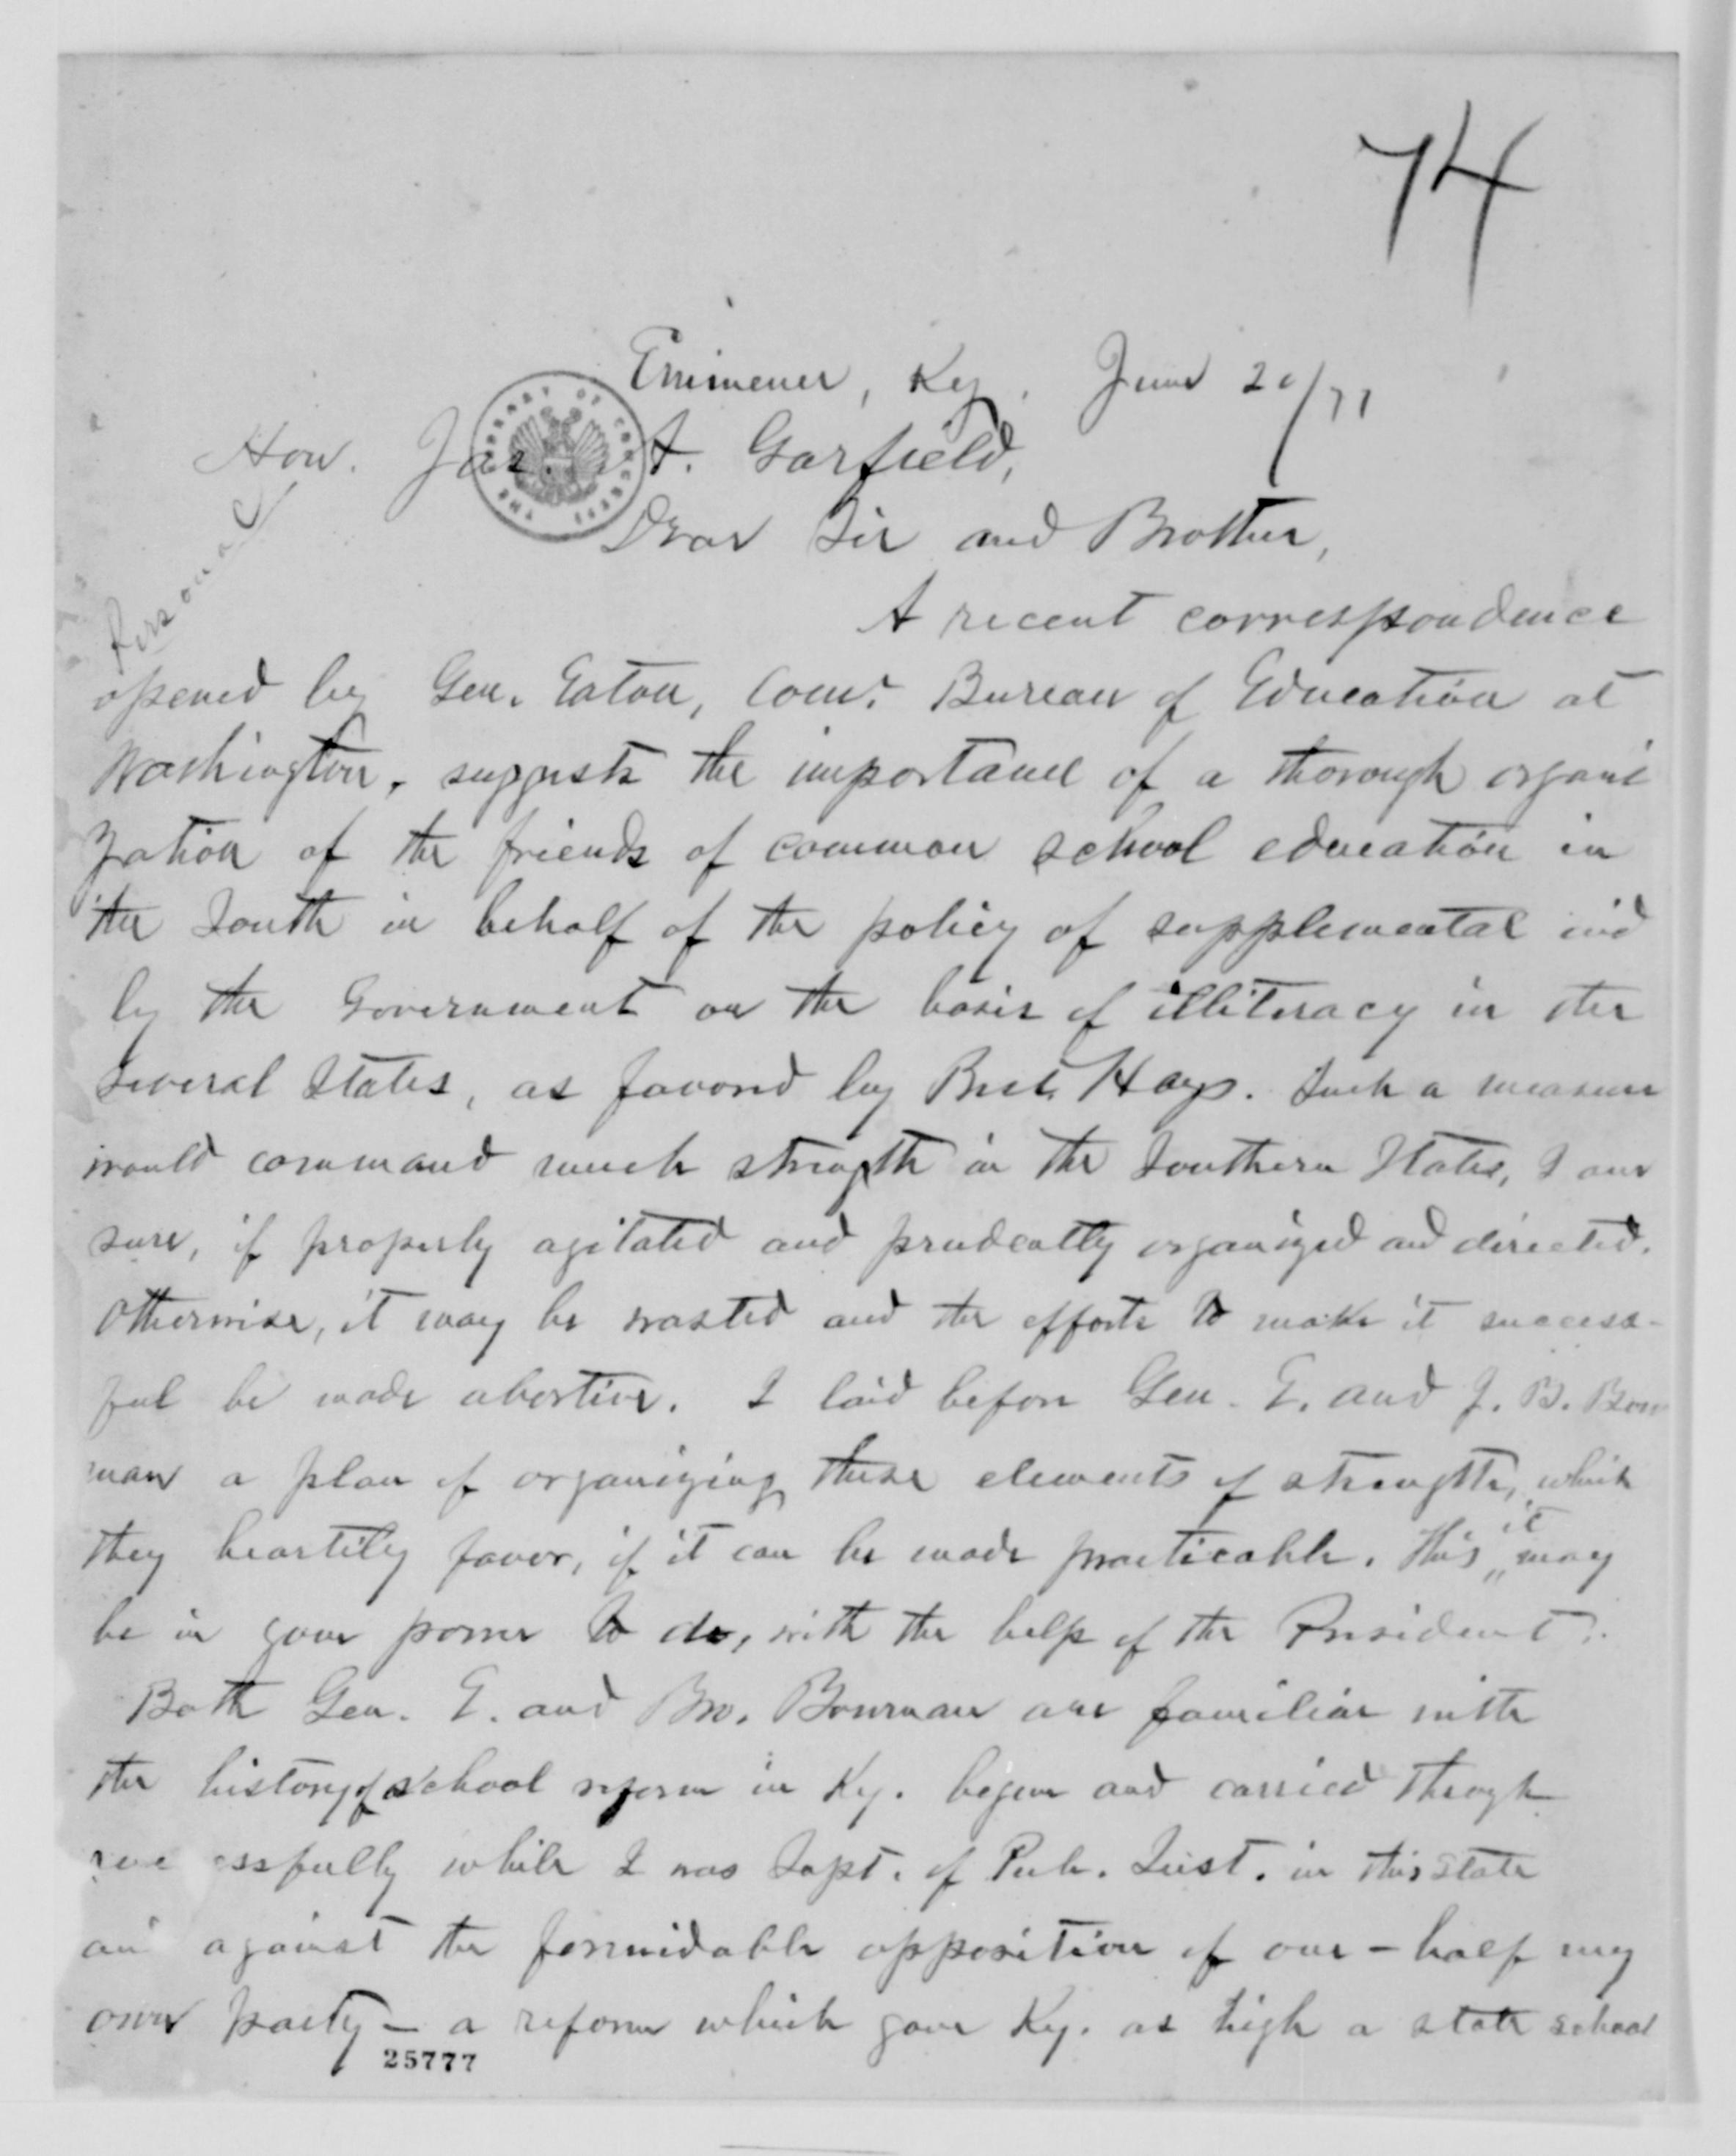 74
Eminence, Ky. June 20/71
Hon. Jas. A. Garfield,
THE LIBRARY OF CONGRESS
Personal
Dear Sir and Brother,
A recent correspondence
opened by Gen. Eaton, Comr. Bureau of Education at
Washington, suggests the importance of a thorough organi
zation of the friends of common school education in
the South in behalf of the policy of supplemental aid
by the Government on the basis of illiteracy in the
several States, as favored by Prest. Hays. Such a measure
would command much strength in the Southern States, I am
sure, if properly agitated and prudently organized and directed.
Otherwise, it may be wasted and the efforts to make it success-
ful be made abortive. I laid before Gen. E. and J. B. Bow
man a plan of organizing these elements of strength, which
they heartily favor, if it can be made practicable. This it may
be in your power to do, with the help of the President.
Both Gen. E. and Bro. Bowman are familiar with
the history of school reform in Ky. begun and carried through
successfully while I was Supt. of Pub. Inst. in this State
and against the formidable opposition of one-half my
own party — a reform which gave Ky. as high a state school
25777